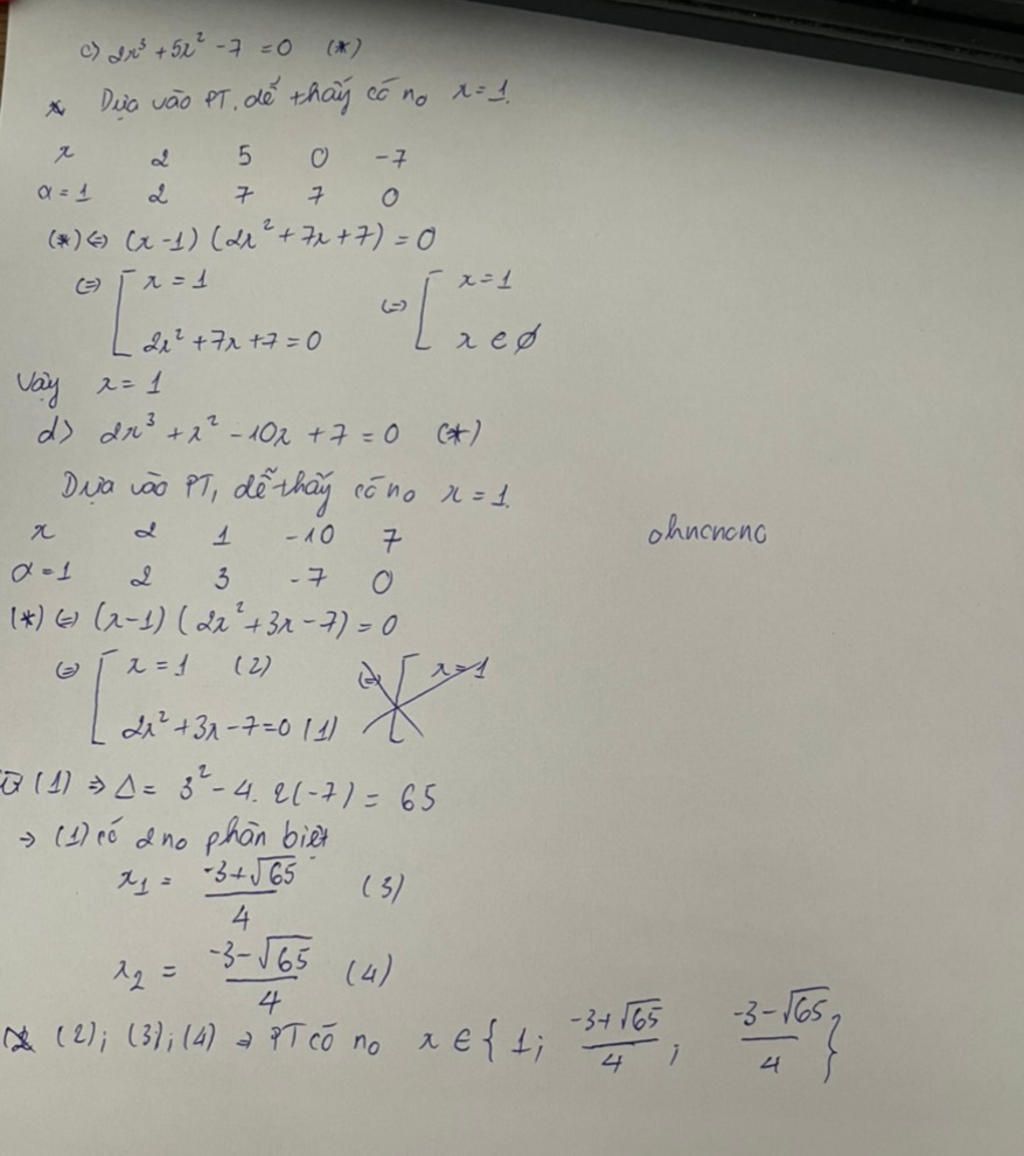 c) 2x³ + 5x² - 7 = 0 (*)
Dựa vào PT, dễ thấy có no x = 1.
x 2 5 0 -7
α = 1 2 7 7 0
(*) ⇔ (x - 1) (2x² + 7x + 7) = 0
⇔ [ x = 1 ⇔ [ x = 1
2x² + 7x + 7 = 0 x ∈ ∅
Vậy x = 1
d) 2x³ + x² - 10x + 7 = 0 (*)
Dựa vào PT, dễ thấy có no x = 1.
x 2 1 -10 7
ohncncnc
α = 1 2 3 -7 0
(*) ⇔ (x - 1) (2x² + 3x - 7) = 0
⇔ [ x = 1 (2) ⇔ [ x = 1
2x² + 3x - 7 = 0 (1)
(1) ⇒ Δ = 3² - 4. 2(-7) = 65
⇒ (1) có 2 no phân biệt
x₁ = \frac{-3+√65}{4} (3)
x₂ = \frac{-3-√65}{4} (4)
(2); (3); (4) ⇒ PT có no x ∈ { 1; \frac{-3+√65}{4}; \frac{-3-√65}{4} }